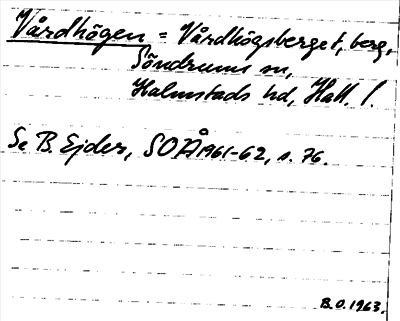 Vårdhögen = Vårdhögsberget, berg,
Söndrums sn,
Halmstads hd, Hall. l.
Se B. Ejder, SOÅ 1961-62, s. 76.
B.O. 1963.